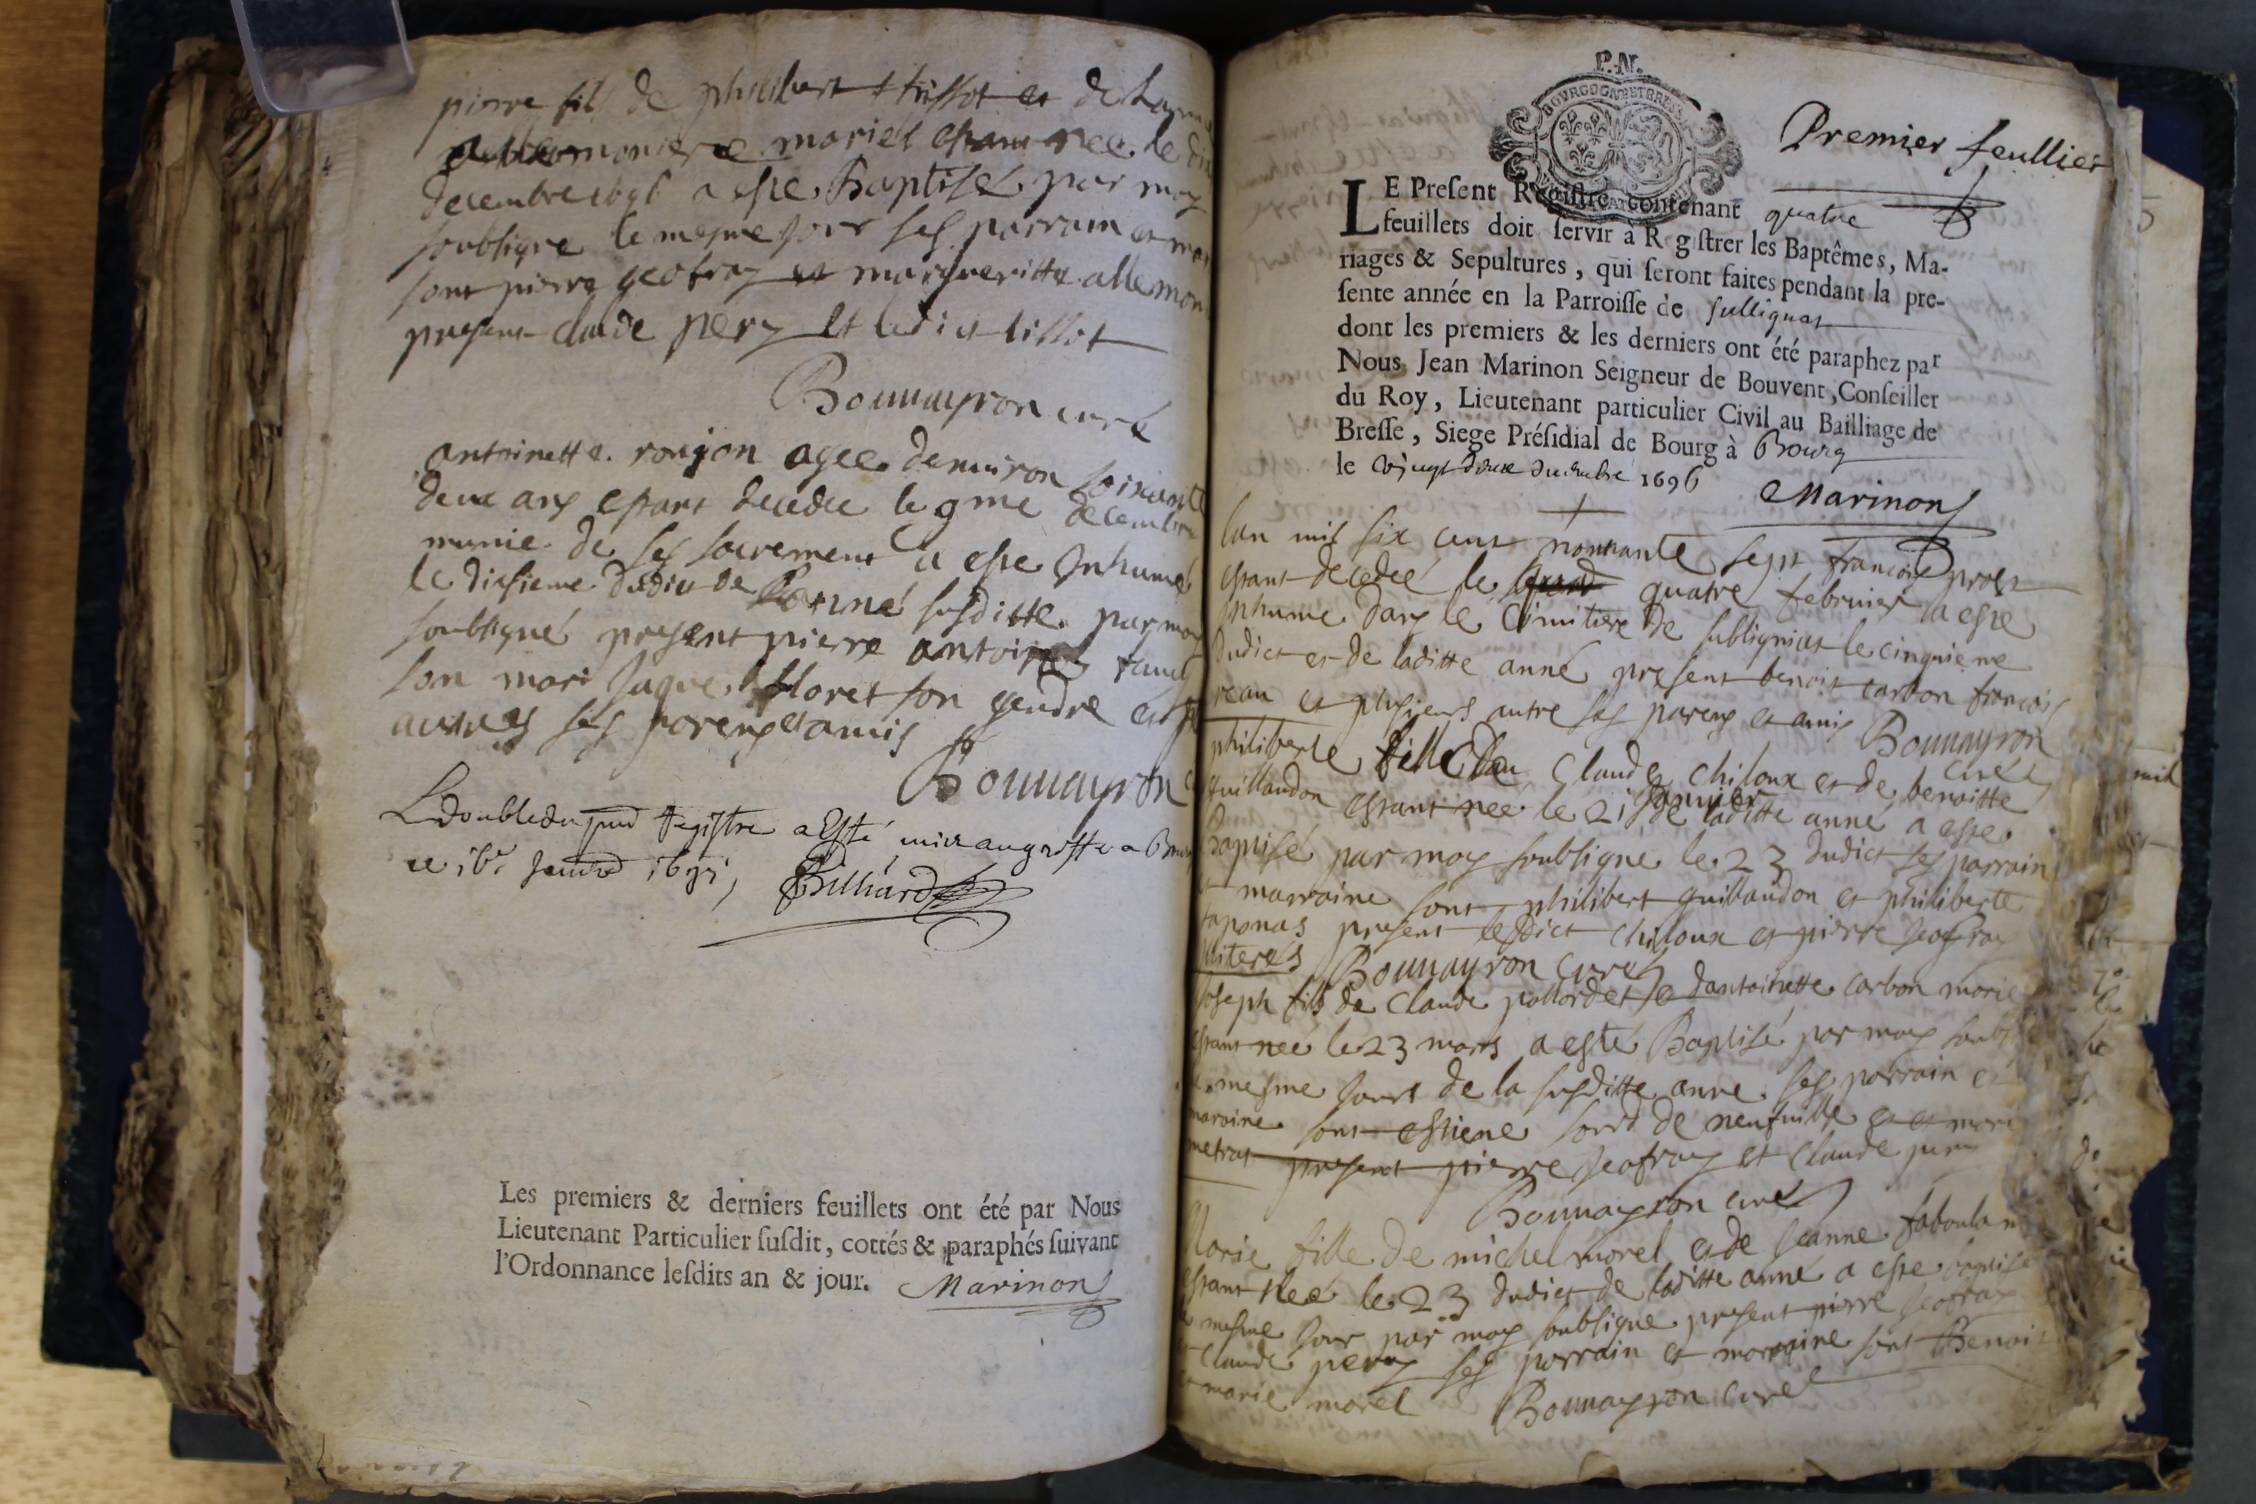 pierre fils de philibert tissot et de
monier mariés estant nee le
decembre 1696 a este Baptisé par moy
soubsigne le mesme jour ses parrain et
sont pierre geofray et margueritte allemon
present claude pery et ledict tissot
Bonnayron curé
antoinette roujon agee denuiron soixante
deux ans estant decedee le 9me decembre
munie de ses sacrement a este Inhumé
le dixsieme dudict de l'anné susditte par moy
soubsigné present pierre antoine
son mari Jaque floret son gendre et
autres ses parens et amis
Bonnayron
Le double du pnt Registre a Esté mis au greffe a
ce
Billiard
Les premiers & derniers feuillets ont été par Nous
Lieutenant Particulier ſuſdit, cottés & paraphés ſuivant
l'Ordonnance leſdits an & jour. Marinon
P.N.
BOURGOGNE ET BRES
Premier feullier
LE Preſent Regiſtre contenant quatre
feuillets doit ſervir à R giſtrer les Baptêmes, Ma-
riages & Sepultures, qui ſeront faites pendant la pre-
ſente année en la Parroiſſe de sullignat
dont les premiers & les derniers ont été paraphez par
Nous Jean Marinon Seigneur de Bouvent, Conſeiller
du Roy, Lieutenant particulier Civil au Bailliage de
Breſſe, Siege Préſidial de Bourg à Bourg
le vingt deux decembre 1696
Marinon
lan mil six cent nonnante sept francois prost
estant decedeé le quatre februier a este
inhume dans le Cimitiere de sullignias le cinquieme
dudict et de laditte anné present benoit carbon francois
reau et plusieurs autre ses parens et amis Bonnayron
curé
philiberte fille de Claude chiloux et de benoitte
guillaudon estant neé le 21 Januier de laditte anné a este
Baptisé par moy soubsigne le 23 dudict ses parrain
et marraine sont philibert guillaudon et philiberte
taponas present ledict chiloux et pierre geofray
Bonnayron curé
Joseph fils de Claude pollordet et dantoinette carbon marié
estant neé le 23 mars a esté Baptisé par moy soubs
le mesme jour de la susditte anne ses parrain et
maraine sont estiene sord de neufuille et
metrat present pierre geofray et Claude pery
Bonnayron curé
Marie fille de michel morel et de Jeanne
estant neé le 23 dudict de laditte anné a este baptisé
le mesme jour par moy soubsigne present pierre geofray
et Claude pery ses parrain et marraine sont Benoit
et marie morel Bonnayron curé